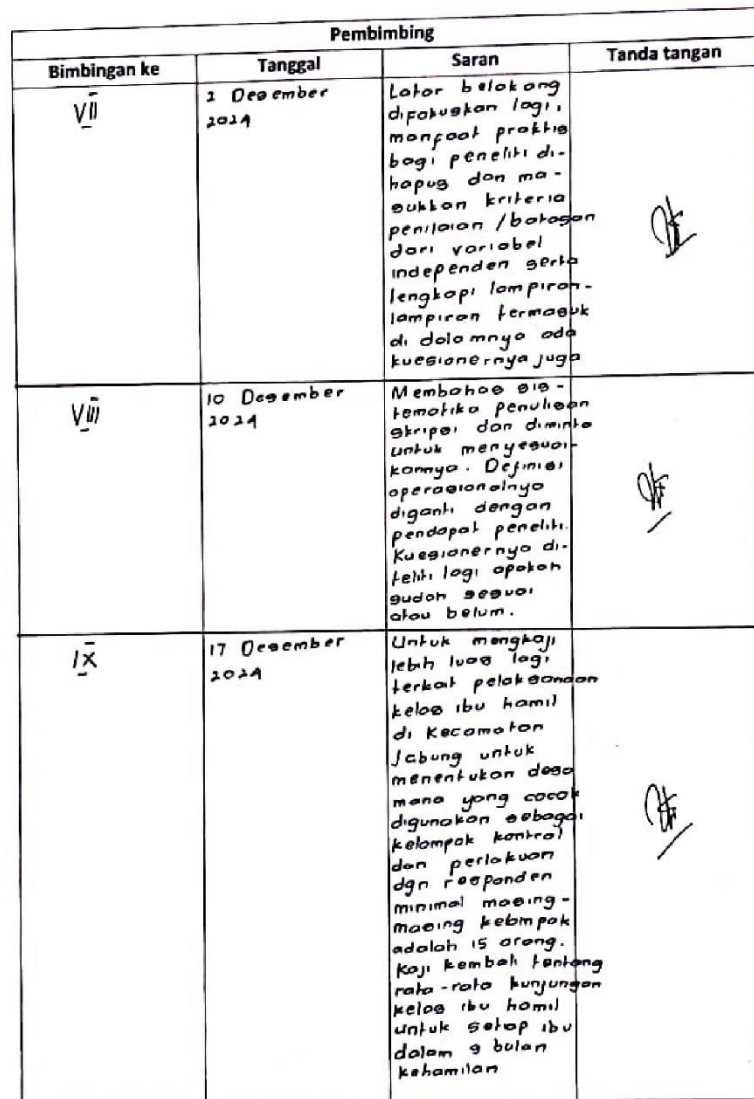 Pembimbing
Bimbingan ke Tanggal Saran Tanda tangan
VII
2 Desember
2024
Latar belakang
difokuskan lagi,
manfaat praktis
bagi peneliti di-
hapus dan ma-
sukkan kriteria
penilaian / batasan
dari variabel
independen serta
lengkapi lampiran-
lampiran termasuk
di dalamnya ada
kuesionernya juga
VIII
10 Desember
2024
Membahas sis-
tematika penulisan
skripsi dan diminta
untuk menyesuai-
kannya. Definisi
operasionalnya
diganti dengan
pendapat peneliti.
Kuesionernya di-
teliti lagi apakah
sudah sesuai
atau belum.
IX
17 Desember
2024
Untuk mengkaji
lebih luas lagi
terkait pelaksanaan
kelas ibu hamil
di Kecamatan
Jabung untuk
menentukan desa
mana yang cocok
digunakan sebagai
kelompok kontrol
dan perlakuan
dgn responden
minimal masing-
masing kelompok
adalah 15 orang.
Kaji kembali tentang
rata-rata kunjungan
kelas ibu hamil
untuk setiap ibu
dalam 9 bulan
kehamilan